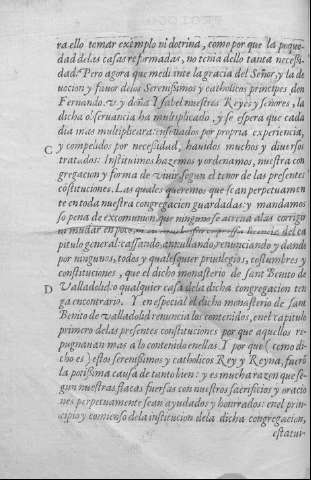 ra ello tomar eximplo ni dotrina, como por que la peque
dad de las casas reformadas, no tenia dello tanta necesi
dad. Pero agora que mediante la gracia del Señor, y la de
uocion y fauor delos Serenissimos y catholicos principes don
Fernando. v. y doña Ysabel nuestros Reyes y señores, la
dicha obseruancia ha multiplicado, y se espera que cada
dia mas multiplicara: enseñados por propia experiencia,
C y compelidos por necesidad, hauidos muchos y diuersos
tratados: Instituimos hazemos y ordenamos, nuestra con
gregacion y forma de viuir segun el tenor de las presentes
cōstituciones. Las quales queremos que sean perpetuamen
te en toda nuestra congregacion guardadas: y mandamos
so pena de excomunion, que ninguno se atreua a las corrigir
ni mudar en poco, ni en mucho sin expressa licencia del ca
pitulo general: cassando, annullando, renunciando y dando
por ningunos, todos y qualesquier priuilegios, costumbres y
constituciones, que el dicho monasterio de Sant Benito de
D Valladolid o qualquier casa de la dicha congregacion ten
ga en contrario. Y en especial el dicho monasterio de Sant
Benito de Valladolid renuncia los contenidos, en el capitulo
primero de las presentes constituciones por que aquellos re
pugnauan mas a lo contenido en ellas. Y por que (como di
cho es) estos serenissimos y catholicos Rey y Reyna, fuerō
la potissima causa de tanto bien: y es mucha razon que se
gun nuestras flacas fuersas con nuestros sacrificios y oracio
nes perpetuamente sean ayudados y honrrados: en el prin
cipio y comienso de la institucion dela dicha congregacion,
estatui-